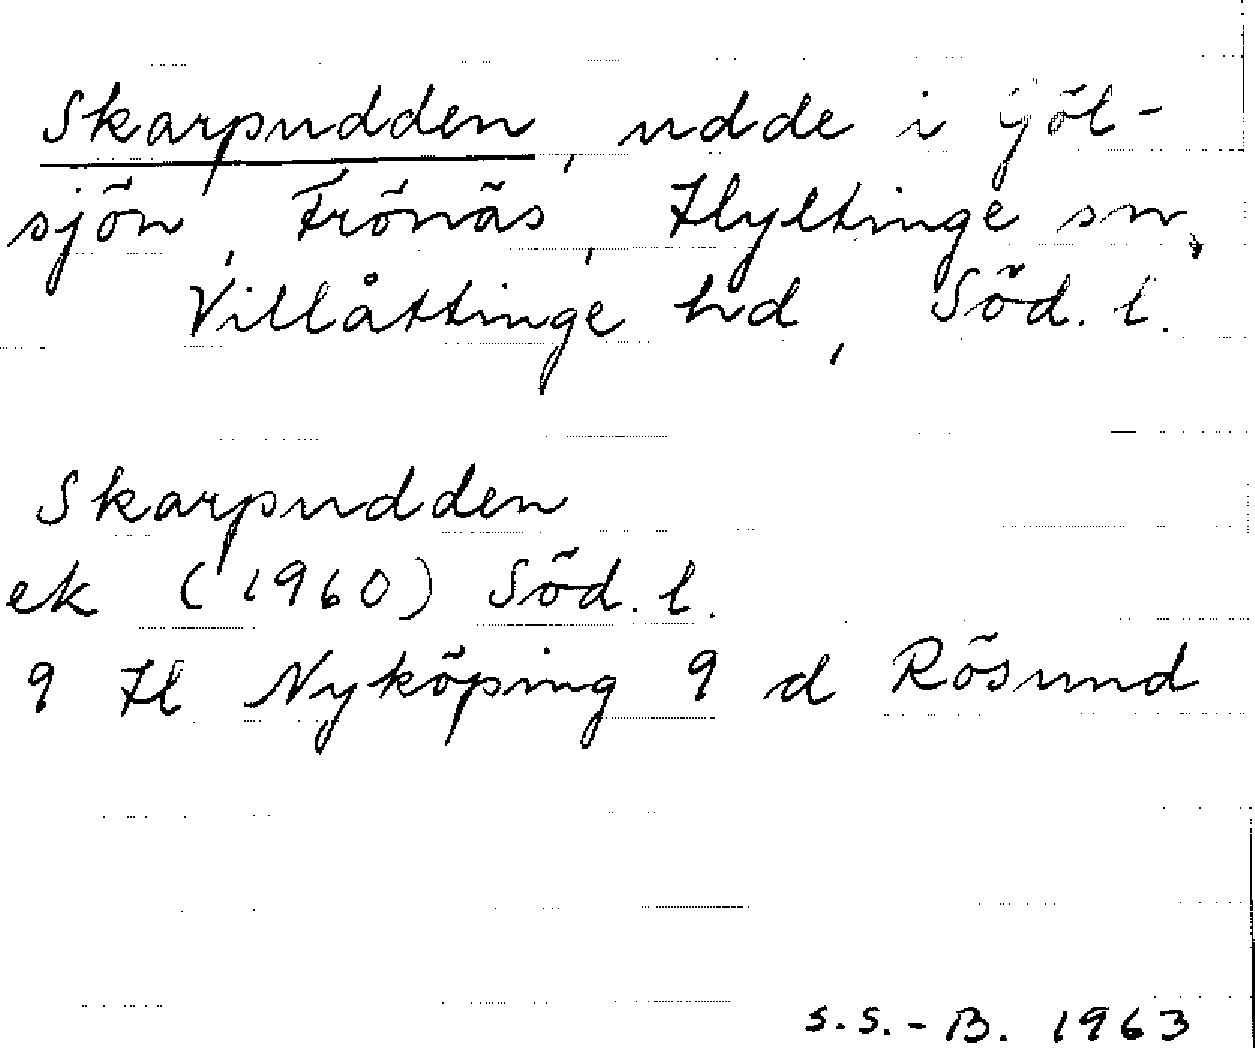 Skarpudden, udde i Göl-
sjön, Frönäs, Hyltinge sn,
Villåttinge hd, Söd. l.
Skarpudden
ek (1960) Söd. l.
9 H Nyköping 9 d Rösund
S.S.-B. 1963